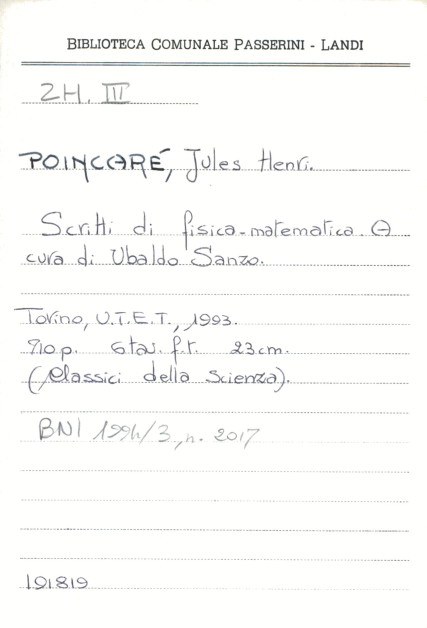 BIBLIOTECA COMUNALE PASSERINI - LANDI
2H. III
POINCARÉ, Jules Henri.
Scritti di fisica-matematica. A
cura di Ubaldo Sanzo.
Torino, U.T.E.T., 1993.
710 p. 6 tav. f.t. 23 cm.
(Classici della Scienza).
BNI 1994/3, n. 2017
191819